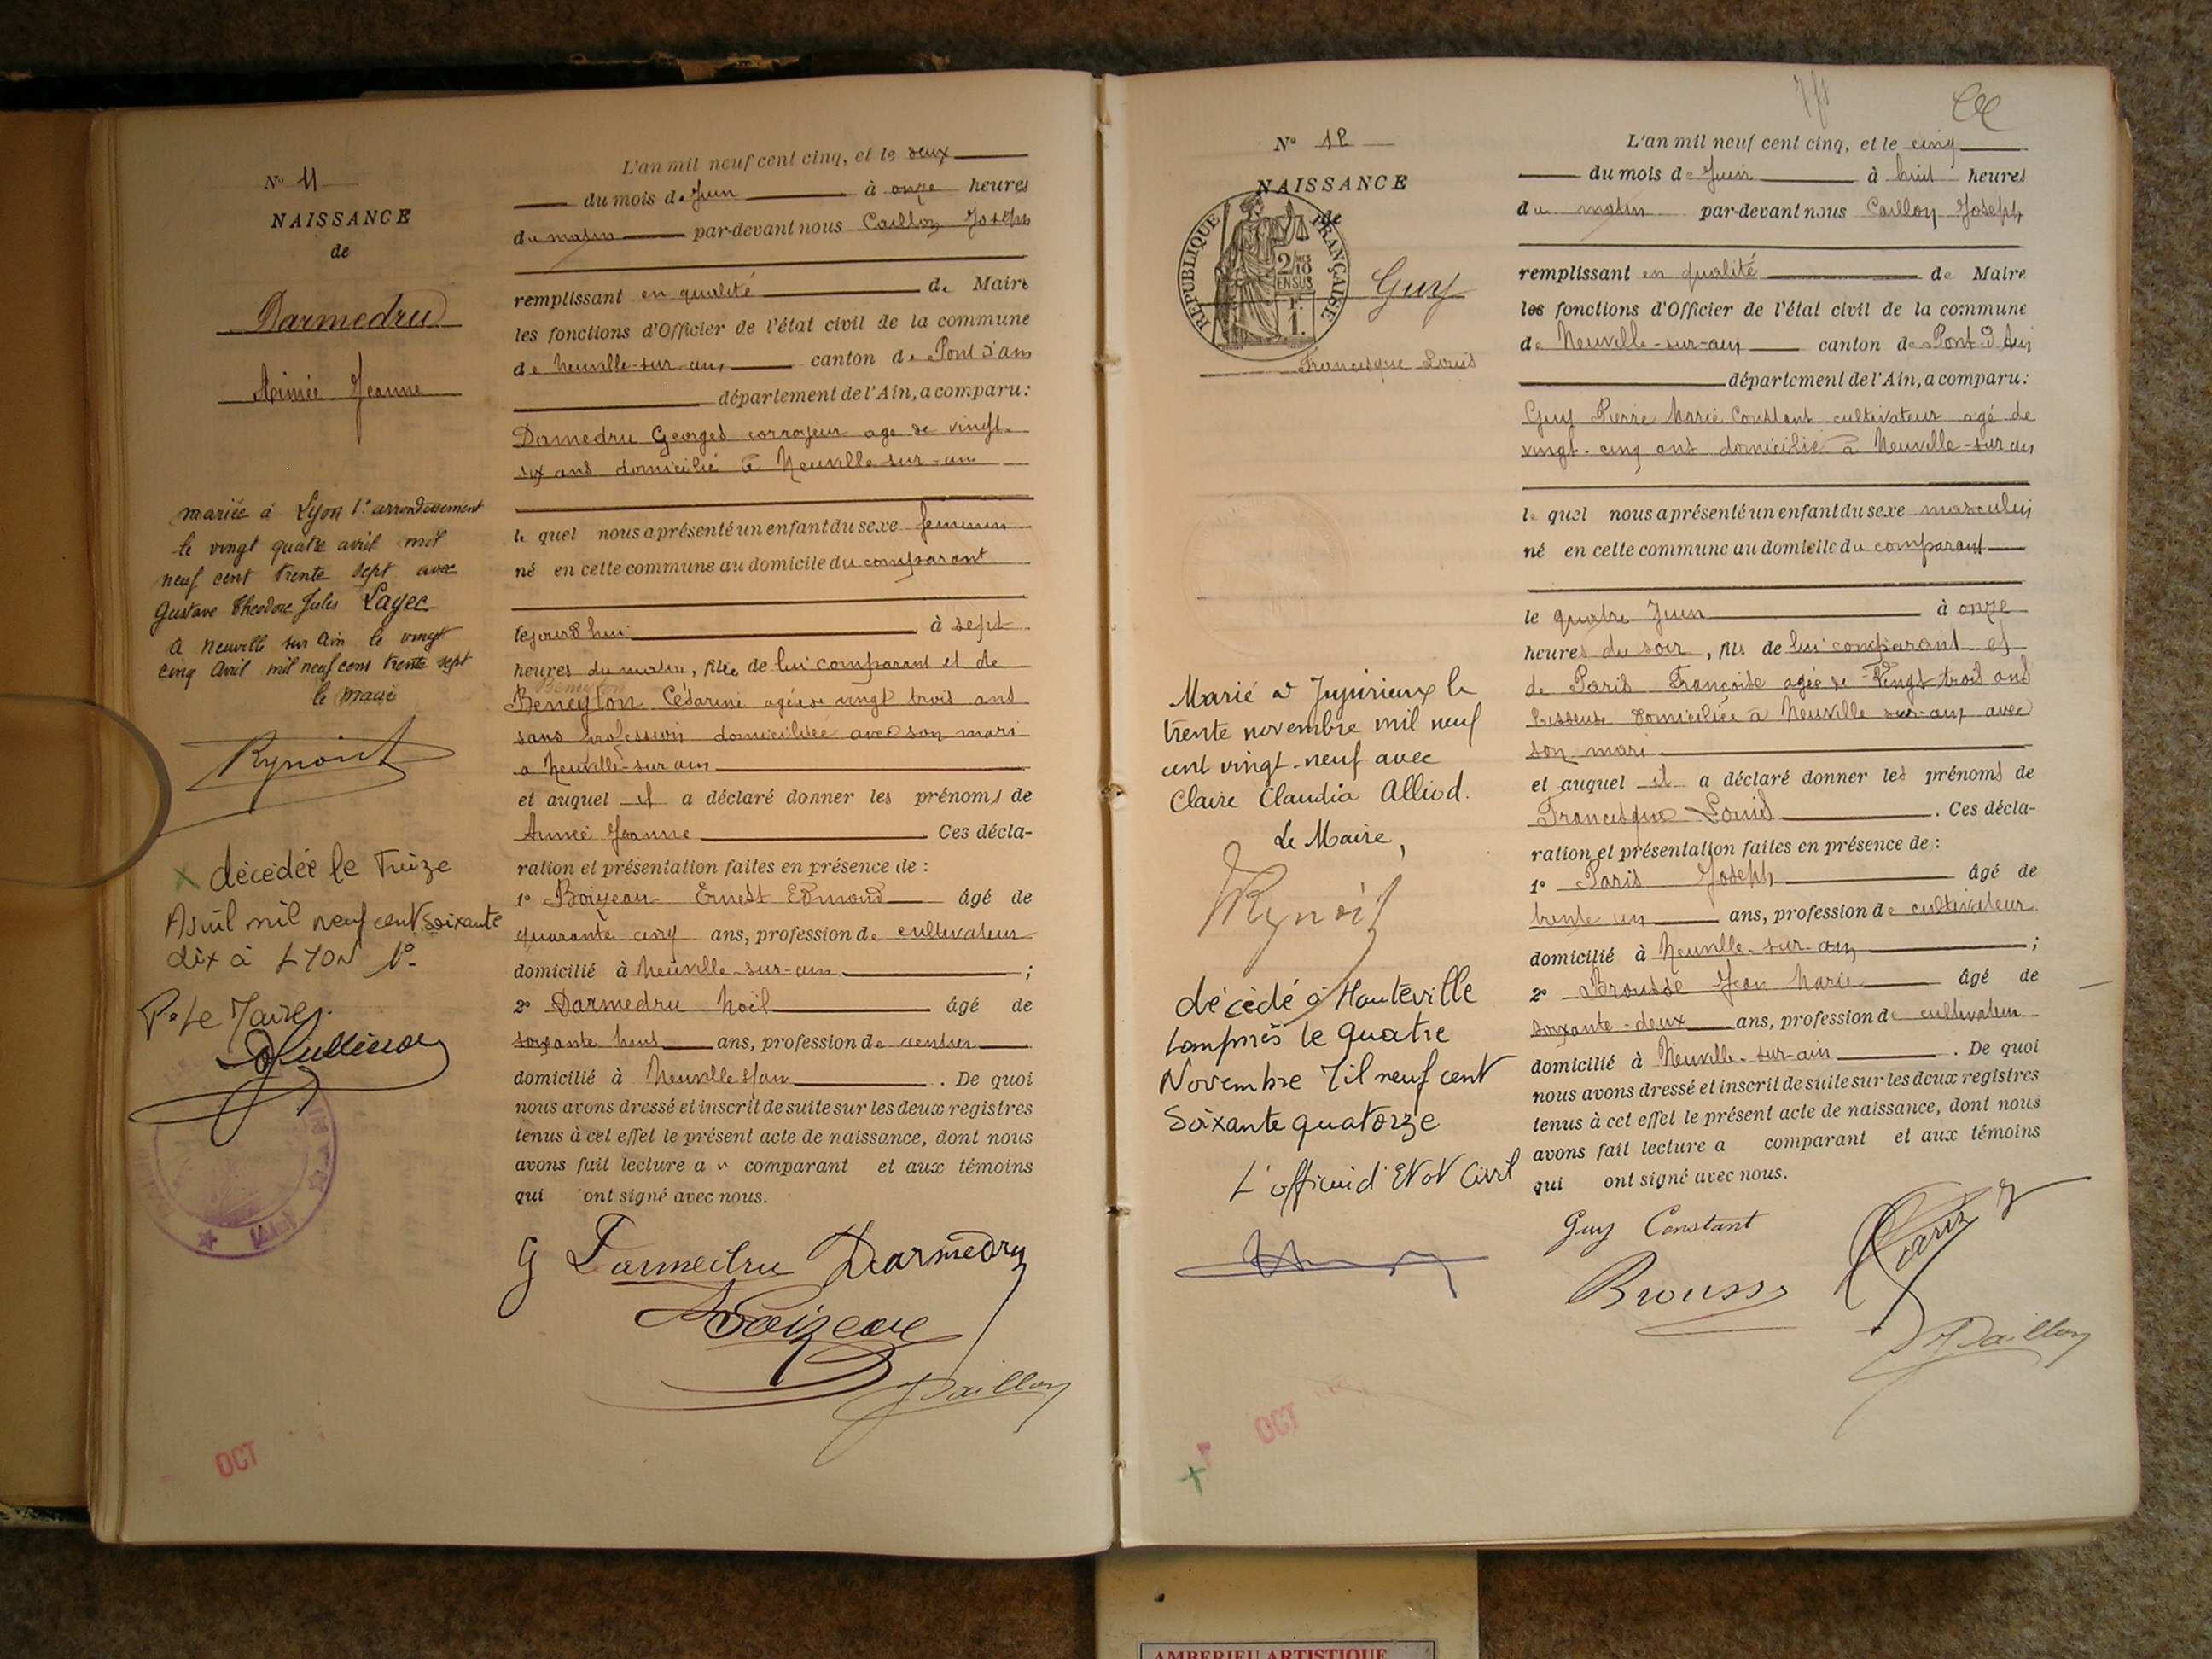 N° 11
NAISSANCE
de
Darmedru
Aimée Jeanne
mariée à Lyon 1° arrondissement
le vingt quatre avril mil
neuf cent trente sept avec
Gustave Theodore Jules Layec
A Neuville sur Ain le vingt
cinq avril mil neuf cent trente sept
le maire
décédée le Treize
Avril mil neuf cent soixante
dix à LYON 1°
P. Le Maire
L'an mil neuf cent cinq, et le deux
du mois de Juin à onze heures
du matin par-devant nous Caillon Joseph
remplissant en qualité de Maire
les fonctions d'Officier de l'état civil de la commune
de Neuville-sur-ain canton de Pont d'ain
département de l'Ain, a comparu:
Damedru Georges corroyeur age de vingt-
six ans domicilié à Neuville-sur-ain
le quel nous a présenté un enfant du sexe feminin
né en cette commune au domicile du comparant
cejourd'hui à sept
heures du matin, fille de lui comparant et de
Beneyton Césarine agée de vingt trois ans
sans profession domiciliée avec son mari
a Neuville-sur-ain
et auquel il a déclaré donner les prénoms de
Aimée Jeanne Ces décla-
ration et présentation faites en présence de :
1° Boizeau Ernest Edmond âgé de
quarante cinq ans, profession de cultivateur
domicilié à Neuville-sur-ain ;
2° Darmedru Noël âgé de
soixante ans, profession de rentier
domicilié à Neuville s/ain . De quoi
nous avons dressé et inscrit de suite sur les deux registres
tenus à cet effet le présent acte de naissance, dont nous
avons fait lecture au comparant et aux témoins
qui ont signé avec nous.
G Darmedru Darmedru
Boizeau
J Caillon
OCT
N° 12
NAISSANCE
de
RÉPUBLIQUE FRANÇAISE
2/10
EN SUS
1 F.
Guy
Francisque Louis
Marié à Jujurieux le
trente novembre mil neuf
cent vingt-neuf avec
Claire Claudia Alliod.
Le Maire,
décédé à Hauteville
Lompnès le quatre
Novembre Mil neuf cent
Soixante quatorze
L'officier d'Etat Civil
L'an mil neuf cent cinq, et le cinq
du mois de Juin à huit heures
du matin par-devant nous Caillon Joseph
remplissant en qualité de Maire
les fonctions d'Officier de l'état civil de la commune
de Neuville-sur-ain canton de Pont d'Ain
département de l'Ain, a comparu:
Guy Pierre Marie Constant cultivateur agé de
vingt-cinq ans domicilié à Neuville-sur-ain
le quel nous a présenté un enfant du sexe masculin
né en cette commune au domicile du comparant
le quatre Juin à onze
heures du soir, fils de lui comparant et
de Paris Françoise agée de Vingt trois ans
domiciliée à Neuville-sur-ain avec
son mari
et auquel il a déclaré donner les prénoms de
Francisque Louis . Ces décla-
ration et présentation faites en présence de :
1° Paris Joseph âgé de
trente un ans, profession de cultivateur
domicilié à Neuville-sur-ain ;
2° Brousse Jean Marie âgé de
soixante-deux ans, profession de cultivateur
domicilié à Neuville-sur-ain . De quoi
nous avons dressé et inscrit de suite sur les deux registres
tenus à cet effet le présent acte de naissance, dont nous
avons fait lecture a comparant et aux témoins
qui ont signé avec nous.
Guy Constant
Paris J
Brousse
J Caillon
OCT
AMBERIEU ARTISTIQUE